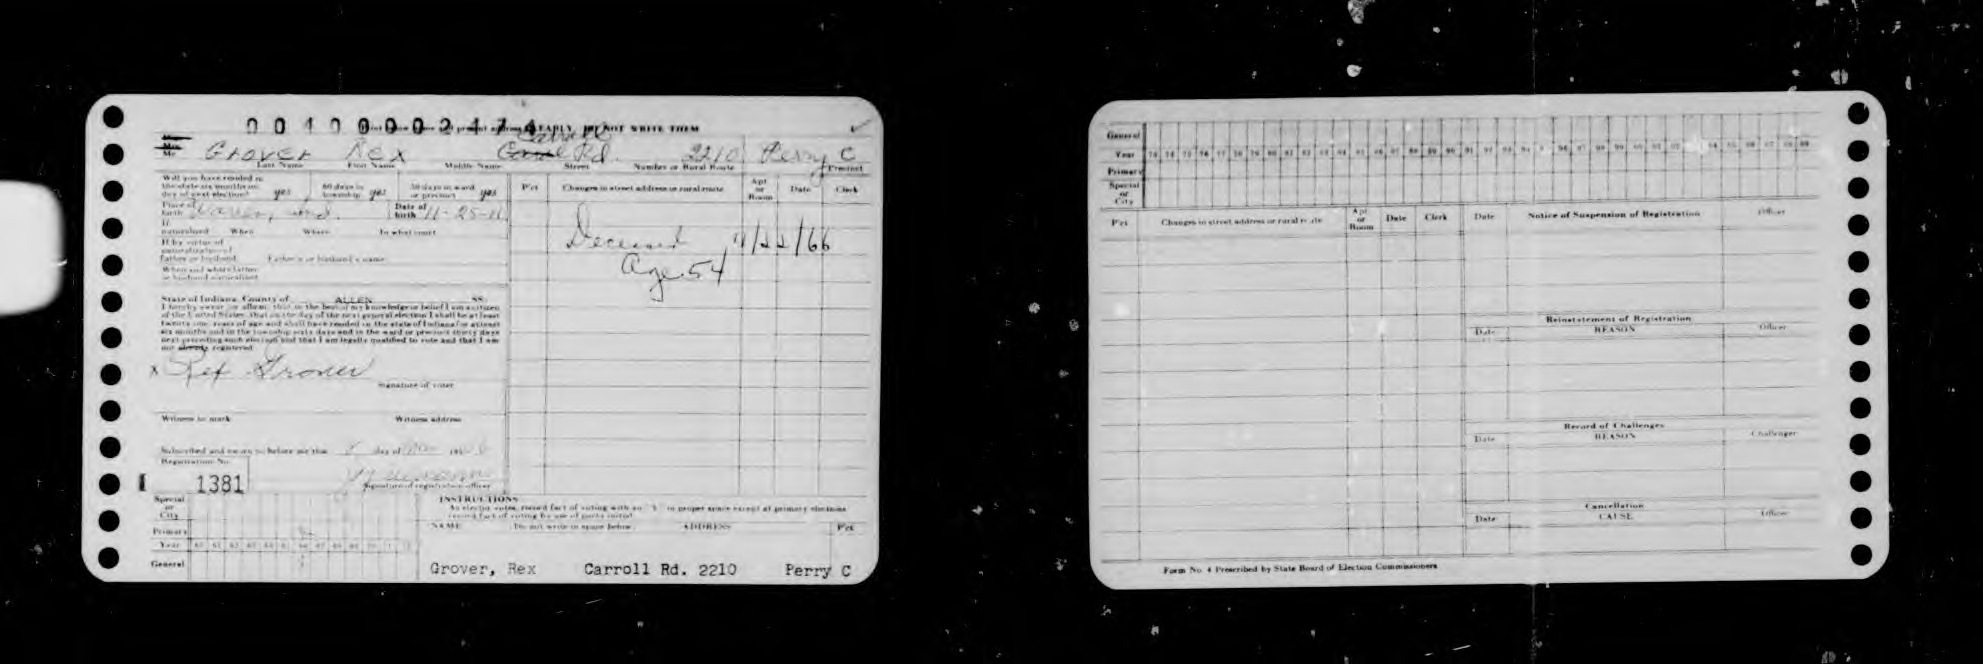 PRINT
CLEARLY, DO NOT WRITE THEM
Mr. Grover Rex Carroll Rd. 2210 Perry C
Last Name First Name Middle Name Street Number or Rural Route Precinct
Will you have resided in
the state six months on
day of next election? yes 60 days in
township yes 30 days in ward
or precinct yes
Place of
birth Ind. Date of
birth 11-25-11
If
naturalized When Where In what court
If by virtue of
naturalization of
father or husband Father's or husband's name
When and where father
or husband naturalized
State of Indiana, County of ALLEN SS:
I hereby swear (or affirm) that to the best of my knowledge or belief I am a citizen
of the United States, that on the day of the next general election I shall be at least
twenty-one years of age and shall have resided in the state of Indiana for at least
six months and in the township sixty days and in the ward or precinct thirty days
next preceding such election and that I am legally qualified to vote and that I am
not already registered.
X Rex Grover
Signature of voter
Witness to mark Witness address
Subscribed and sworn to before me this day of 19
Registration No.
1381
Signature of registration officer
Pct Changes in street address or rural route Apt
or
Room Date Clerk
Deceased 4/22/66
Age 54
Special
or
City
Primary
Year 60 61 62 63 64 65 66 67 68 69 70 71 72
General
INSTRUCTIONS
As elector votes, record fact of voting with an "X" in proper space except at primary elections
record fact of voting by use of party initial.
NAME Do not write in space below ADDRESS Pct
Grover, Rex Carroll Rd. 2210 Perry C
General
Year 73 74 75 76 77 78 79 80 81 82 83 84 85 86 87 88 89 90 91 92 93 94 95 96 97 98 99
Primary
Special
or
City
Pct Changes in street address or rural route Apt
or
Room Date Clerk
Date Notice of Suspension of Registration Officer
Reinstatement of Registration
Date REASON Officer
Record of Challenges
Date REASON Challenger
Cancellation
Date CAUSE Officer
Form No. 4 Prescribed by State Board of Election Commissioners